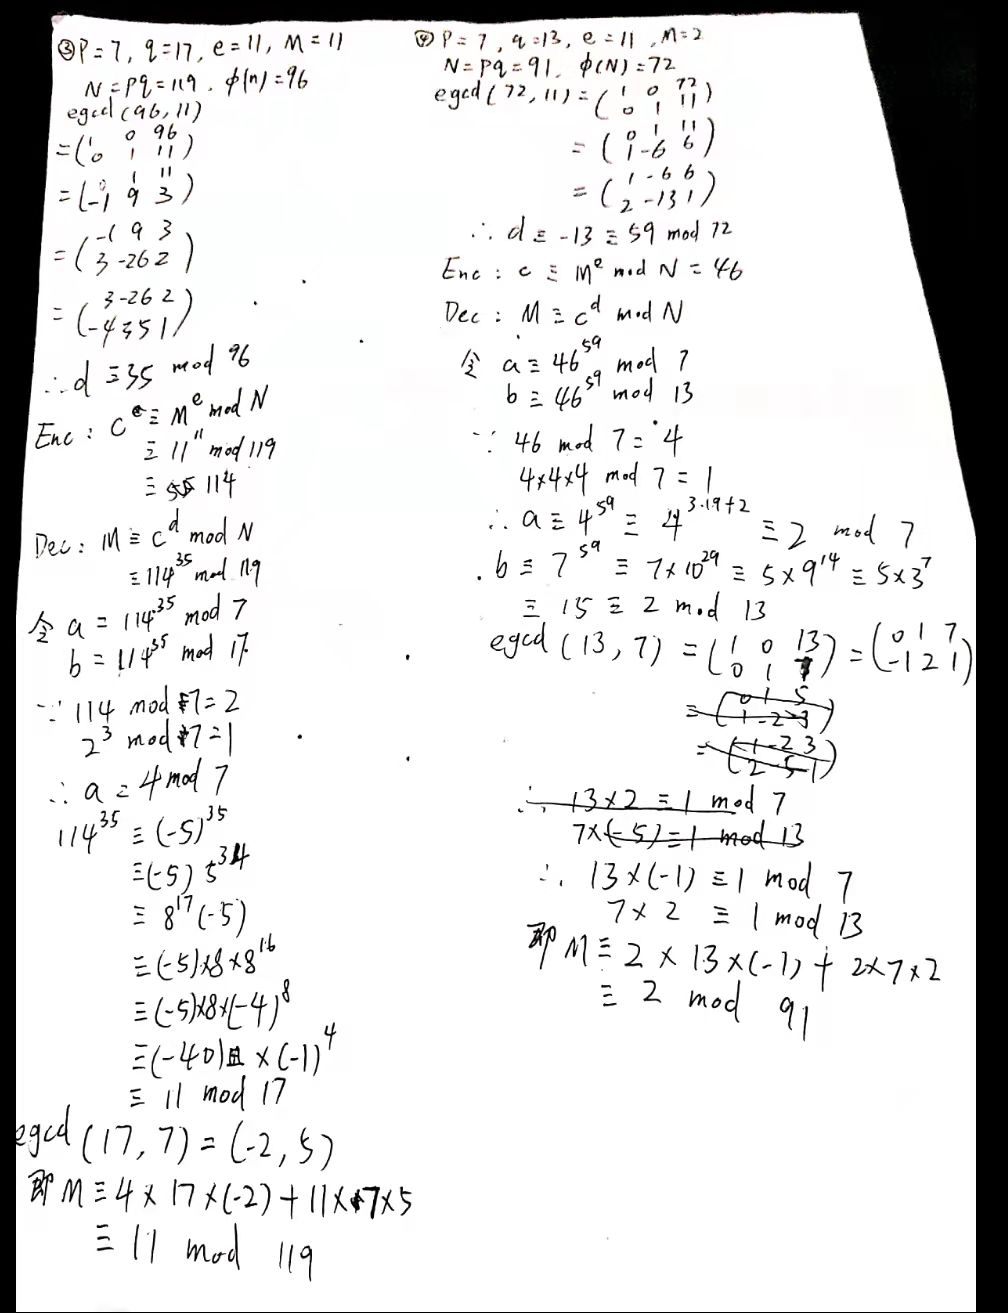 ③ P=7, q=17, e=11, M=11
N=Pq=119, φ(n)=96
egcd(96,11)
=(1 0 96
0 1 11)
=(0 1 11
-1 9 3)
=(-1 9 3
3 -26 2)
=(3 -26 2
-4 35 1)
∴d≡35 mod 96
Enc: C≡M^e mod N
≡11^11 mod 119
≡114
Dec: M≡C^d mod N
≡114^35 mod 119
令 a=114^35 mod 7
b=114^35 mod 17
∵114 mod 7=2
2^3 mod 7=1
∴a=4 mod 7
114^35≡(-5)^35
≡(-5)5^34
≡8^17(-5)
≡(-5)×8×8^16
≡(-5)×8×(-4)^8
≡(-40)×(-1)^4
≡11 mod 17
egcd(17,7)=(-2,5)
即M≡4×17×(-2)+11×7×5
≡11 mod 119
④ P=7, q=13, e=11, M=2
N=Pq=91, φ(N)=72
egcd(72,11)=(1 0 72
0 1 11)
=(0 1 11
1 -6 6)
=(1 -6 6
2 -13 1)
∴d≡-13≡59 mod 72
Enc: c≡M^e mod N=46
Dec: M≡c^d mod N
令 a≡46^59 mod 7
b≡46^59 mod 13
∵46 mod 7=4
4×4×4 mod 7=1
∴a≡4^59≡4^3·19+2≡2 mod 7
b≡7^59≡7×10^29≡5×9^14≡5×3^7
≡15≡2 mod 13
egcd(13,7)=(1 0 13
0 1 7)=(0 1 7
-1 2 1)
=(0 1 5
1 -2 3)
=(1 -2 3
2 -5 1)
∴13×2≡1 mod 7
7×(-5)≡1 mod 13
∴13×(-1)≡1 mod 7
7×2≡1 mod 13
即M≡2×13×(-1)+2×7×2
≡2 mod 91